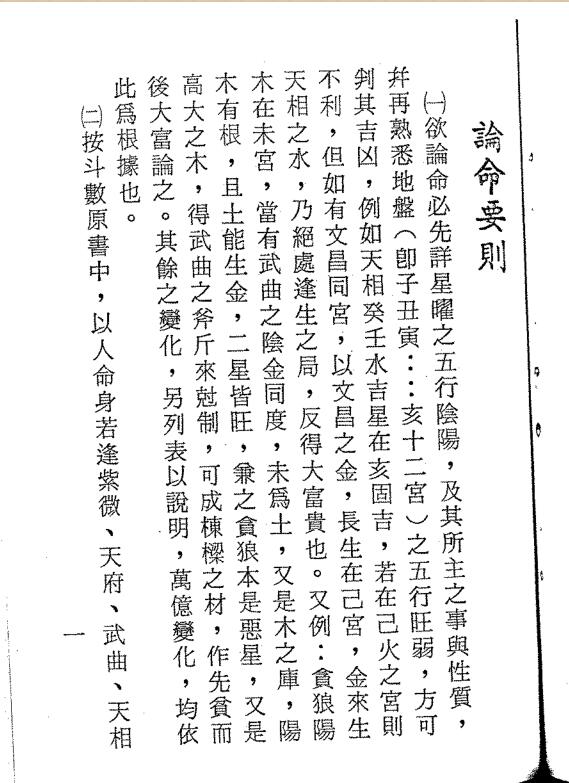 論命要則
㈠欲論命必先詳星曜之五行陰陽，及其所主之事與性質，
幷再熟悉地盤（卽子丑寅：：亥十二宮）之五行旺弱，方可
判其吉凶，例如天相癸壬水吉星在亥固吉，若在己火之宮則
不利，但如有文昌同宮，以文昌之金，長生在己宮，金來生
天相之水，乃絕處逢生之局，反得大富貴也。又例：貪狼陽
木在未宮，當有武曲之陰金同度，未爲土，又是木之庫，陽
木有根，且土能生金，二星皆旺，兼之貪狼本是惡星，又是
高大之木，得武曲之斧斤來尅制，可成棟樑之材，作先貧而
後大富論之。其餘之變化，另列表以說明，萬億變化，均依
此爲根據也。
㈡按斗數原書中，以人命身若逢紫微、天府、武曲、天相
一